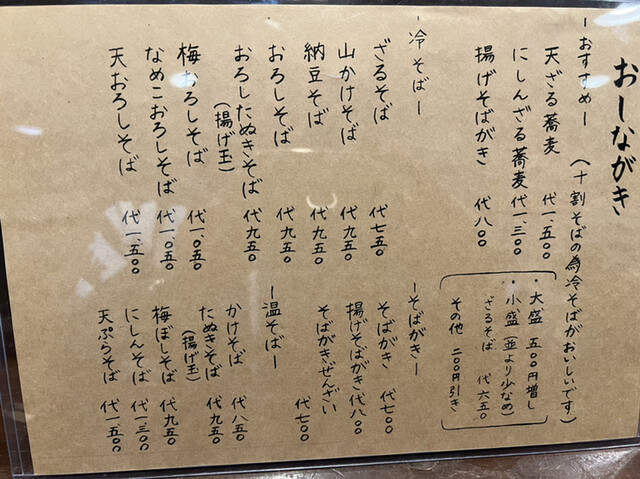 おしながき
ーおすすめー （十割そばの為冷そばがおいしいです）
天ざる蕎麦 代一、五〇〇
にしんざる蕎麦 代一、三〇〇
揚げそばがき 代八〇〇
・大盛 五〇〇円増し
・小盛（並より少なめ）
ざるそば 代六五〇
その他 二〇〇円引き
ー冷そばー
ざるそば 代七五〇
山かけそば 代九五〇
納豆そば 代九五〇
おろしそば 代九五〇
おろしたぬきそば 代九五〇
（揚げ玉）
梅おろしそば 代一、〇五〇
なめこおろしそば 代一、〇五〇
天おろしそば 代一、五〇〇
ーそばがきー
そばがき 代七〇〇
揚げそばがき 代八〇〇
そばがきぜんざい
代七〇〇
ー温そばー
かけそば 代八五〇
たぬきそば 代九五〇
（揚げ玉）
梅ぼしそば 代九五〇
にしんそば 代一三〇〇
天ぷらそば 代一五〇〇